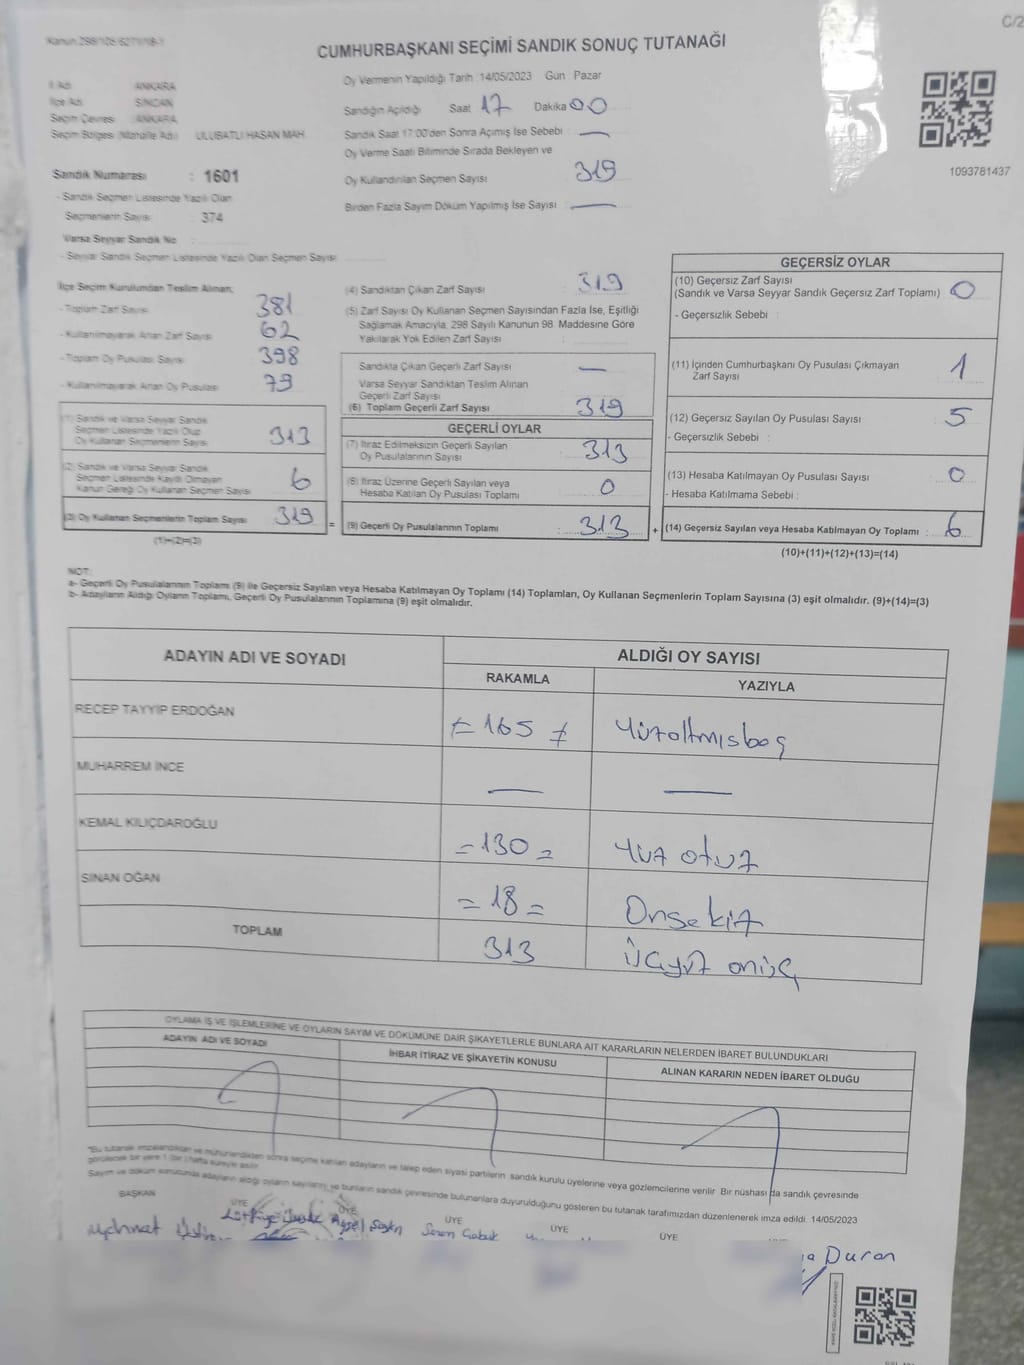 Kanun 298/105-6271/18-1
C/2
CUMHURBAŞKANI SEÇİMİ SANDIK SONUÇ TUTANAĞI
İl Adı ANKARA
İlçe Adı SİNCAN
Seçim Çevresi ANKARA
Seçim Bölgesi (Mahalle Adı) ULUBATLI HASAN MAH.
Sandık Numarası : 1601
- Sandık Seçmen Listesinde Yazılı Olan
Seçmenlerin Sayısı : 374
Varsa Seyyar Sandık No :
- Seyyar Sandık Seçmen Listesinde Yazılı Olan Seçmen Sayısı
Oy Vermenin Yapıldığı Tarih 14/05/2023 Gün Pazar
Sandığın Açıldığı Saat 17 Dakika 00
Sandık Saat 17:00'den Sonra Açımış İse Sebebi : —
Oy Verme Saati Bitiminde Sırada Bekleyen ve
Oy Kullandırılan Seçmen Sayısı 319
Birden Fazla Sayım Döküm Yapılmış İse Sayısı —
1093781437
İlçe Seçim Kurulundan Teslim Alınan;
- Toplam Zarf Sayısı 381
- Kullanılmayarak Artan Zarf Sayısı 62
- Toplam Oy Pusulası Sayısı 398
- Kullanılmayarak Artan Oy Pusulası 79
(1) Sandık ve Varsa Seyyar Sandık
Seçmen Listesinde Yazılı Olup
Oy Kullanan Seçmenlerin Sayısı 313
(2) Sandık ve Varsa Seyyar Sandık
Seçmen Listesinde Kayıtlı Olmayan
Kanun Gereği Oy Kullanan Seçmen Sayısı 6
(3) Oy Kullanan Seçmenlerin Toplam Sayısı 319 =
(1)+(2)=(3)
(4) Sandıktan Çıkan Zarf Sayısı : 319
(5) Zarf Sayısı Oy Kullanan Seçmen Sayısından Fazla İse, Eşitliği
Sağlamak Amacıyla, 298 Sayılı Kanunun 98. Maddesine Göre
Yakılarak Yok Edilen Zarf Sayısı :
Sandıkta Çıkan Geçerli Zarf Sayısı —
Varsa Seyyar Sandıktan Teslim Alınan
Geçerli Zarf Sayısı
(6) Toplam Geçerli Zarf Sayısı 319
GEÇERLİ OYLAR
(7) İtiraz Edilmeksizin Geçerli Sayılan
Oy Pusulalarının Sayısı : 313
(8) İtiraz Üzerine Geçerli Sayılan veya
Hesaba Katılan Oy Pusulası Toplamı 0
(9) Geçerli Oy Pusulalarının Toplamı : 313 +
GEÇERSİZ OYLAR
(10) Geçersiz Zarf Sayısı
(Sandık ve Varsa Seyyar Sandık Geçersiz Zarf Toplamı) 0
- Geçersizlik Sebebi :
(11) İçinden Cumhurbaşkanı Oy Pusulası Çıkmayan
Zarf Sayısı : 1
(12) Geçersiz Sayılan Oy Pusulası Sayısı : 5
- Geçersizlik Sebebi :
(13) Hesaba Katılmayan Oy Pusulası Sayısı : 0
- Hesaba Katılmama Sebebi :
(14) Geçersiz Sayılan veya Hesaba Katılmayan Oy Toplamı : 6
(10)+(11)+(12)+(13)=(14)
NOT:
a- Geçerli Oy Pusulalarının Toplamı (9) ile Geçersiz Sayılan veya Hesaba Katılmayan Oy Toplamı (14) Toplamları, Oy Kullanan Seçmenlerin Toplam Sayısına (3) eşit olmalıdır. (9)+(14)=(3)
b- Adayların Aldığı Oyların Toplamı, Geçerli Oy Pusulalarının Toplamına (9) eşit olmalıdır.
ADAYIN ADI VE SOYADI ALDIĞI OY SAYISI
RAKAMLA YAZIYLA
RECEP TAYYİP ERDOĞAN = 165 = Yüzaltmışbeş
MUHARREM İNCE — —
KEMAL KILIÇDAROĞLU = 130 = Yüz otuz
SİNAN OĞAN = 18 = Onsekiz
TOPLAM 313 Üçyüz onüç
OYLAMA İŞ VE İŞLEMLERİNE VE OYLARIN SAYIM VE DÖKÜMÜNE DAİR ŞİKAYETLERLE BUNLARA AİT KARARLARIN NELERDEN İBARET BULUNDUKLARI
ADAYIN ADI VE SOYADI İHBAR İTİRAZ VE ŞİKAYETİN KONUSU ALINAN KARARIN NEDEN İBARET OLDUĞU
"Bu tutanak imzalandıktan ve mühürlendikten sonra seçime katılan adayların ve talep eden siyasi partilerin sandık kurulu üyelerine veya gözlemcilerine verilir. Bir nüshası da sandık çevresinde
görülecek bir yere 1 (bir) hafta süreyle asılır.
Sayım ve döküm sonucunda adayların aldığı oyların sayılarını ve bunların sandık çevresinde bulunanlara duyurulduğunu gösteren bu tutanak tarafımızdan düzenlenerek imza edildi. 14/05/2023
BAŞKAN ÜYE ÜYE ÜYE ÜYE ÜYE
Aysel
Duran